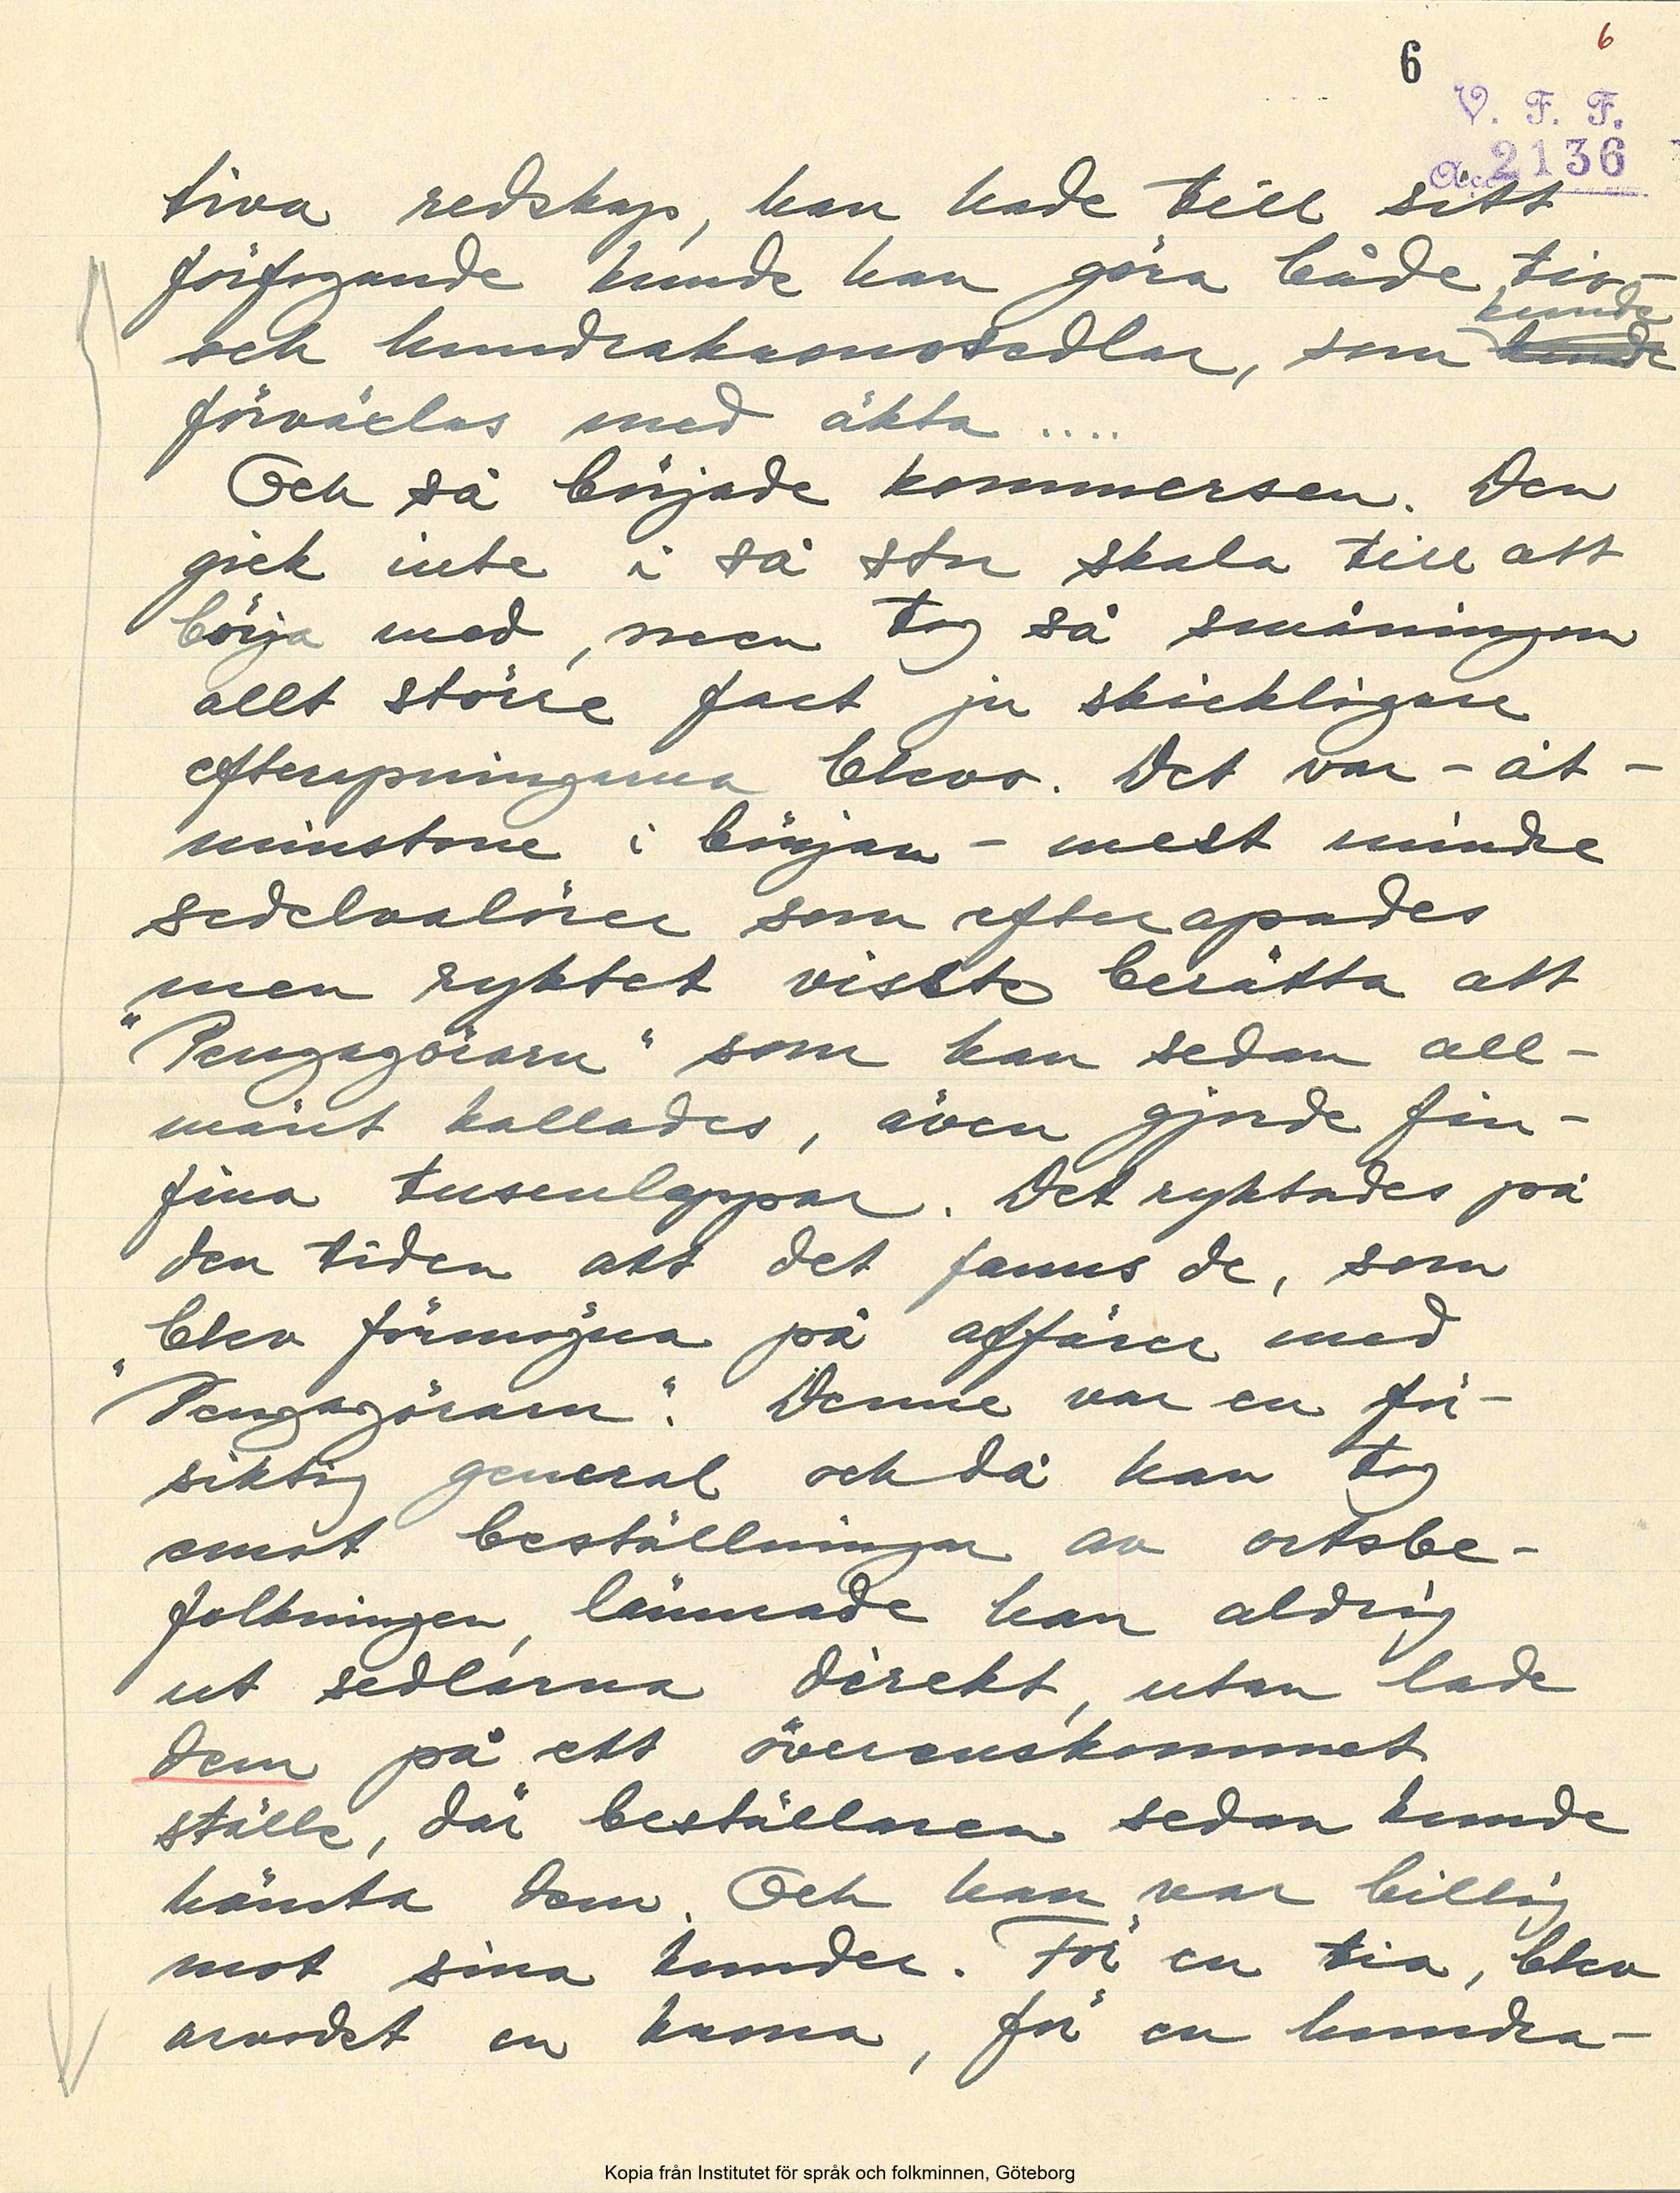 6
6
V. F. F.
Acc. 2136
tiva redskap, han hade till sitt
förfogande kunde han göra både tio-
kunde
och hundrakronosedlar, som
förväxlas med äkta ....
Och så började kommersen. Den
gick inte i så stor skala till att
börja med, men tog så småningom
allt större fart ju skickligare
efterapningarna blevo. Det var - åt-
minstone i början - mest mindre
sedelvalörer som efterapades
men ryktet visste berätta att
"Pengagörarn" som han sedan all-
mänt kallades, även gjorde fin-
fina tusenlappar. Det ryktades på
den tiden att det fanns de, som
blev förmögna på affärer med
"Pengagörarn". Denne var en för-
siktig general och då han tog
emot beställningar av ortsbe-
folkningen, lämnade han aldrig
ut sedlarna direkt, utan lade
dem på ett överenskommet
ställe, där beställaren sedan kunde
hämta dem. Och han var billig
mot sina kunder. För en tia, blev
arvodet en krona, för en hundra-
Kopia från Institutet för språk och folkminnen, Göteborg